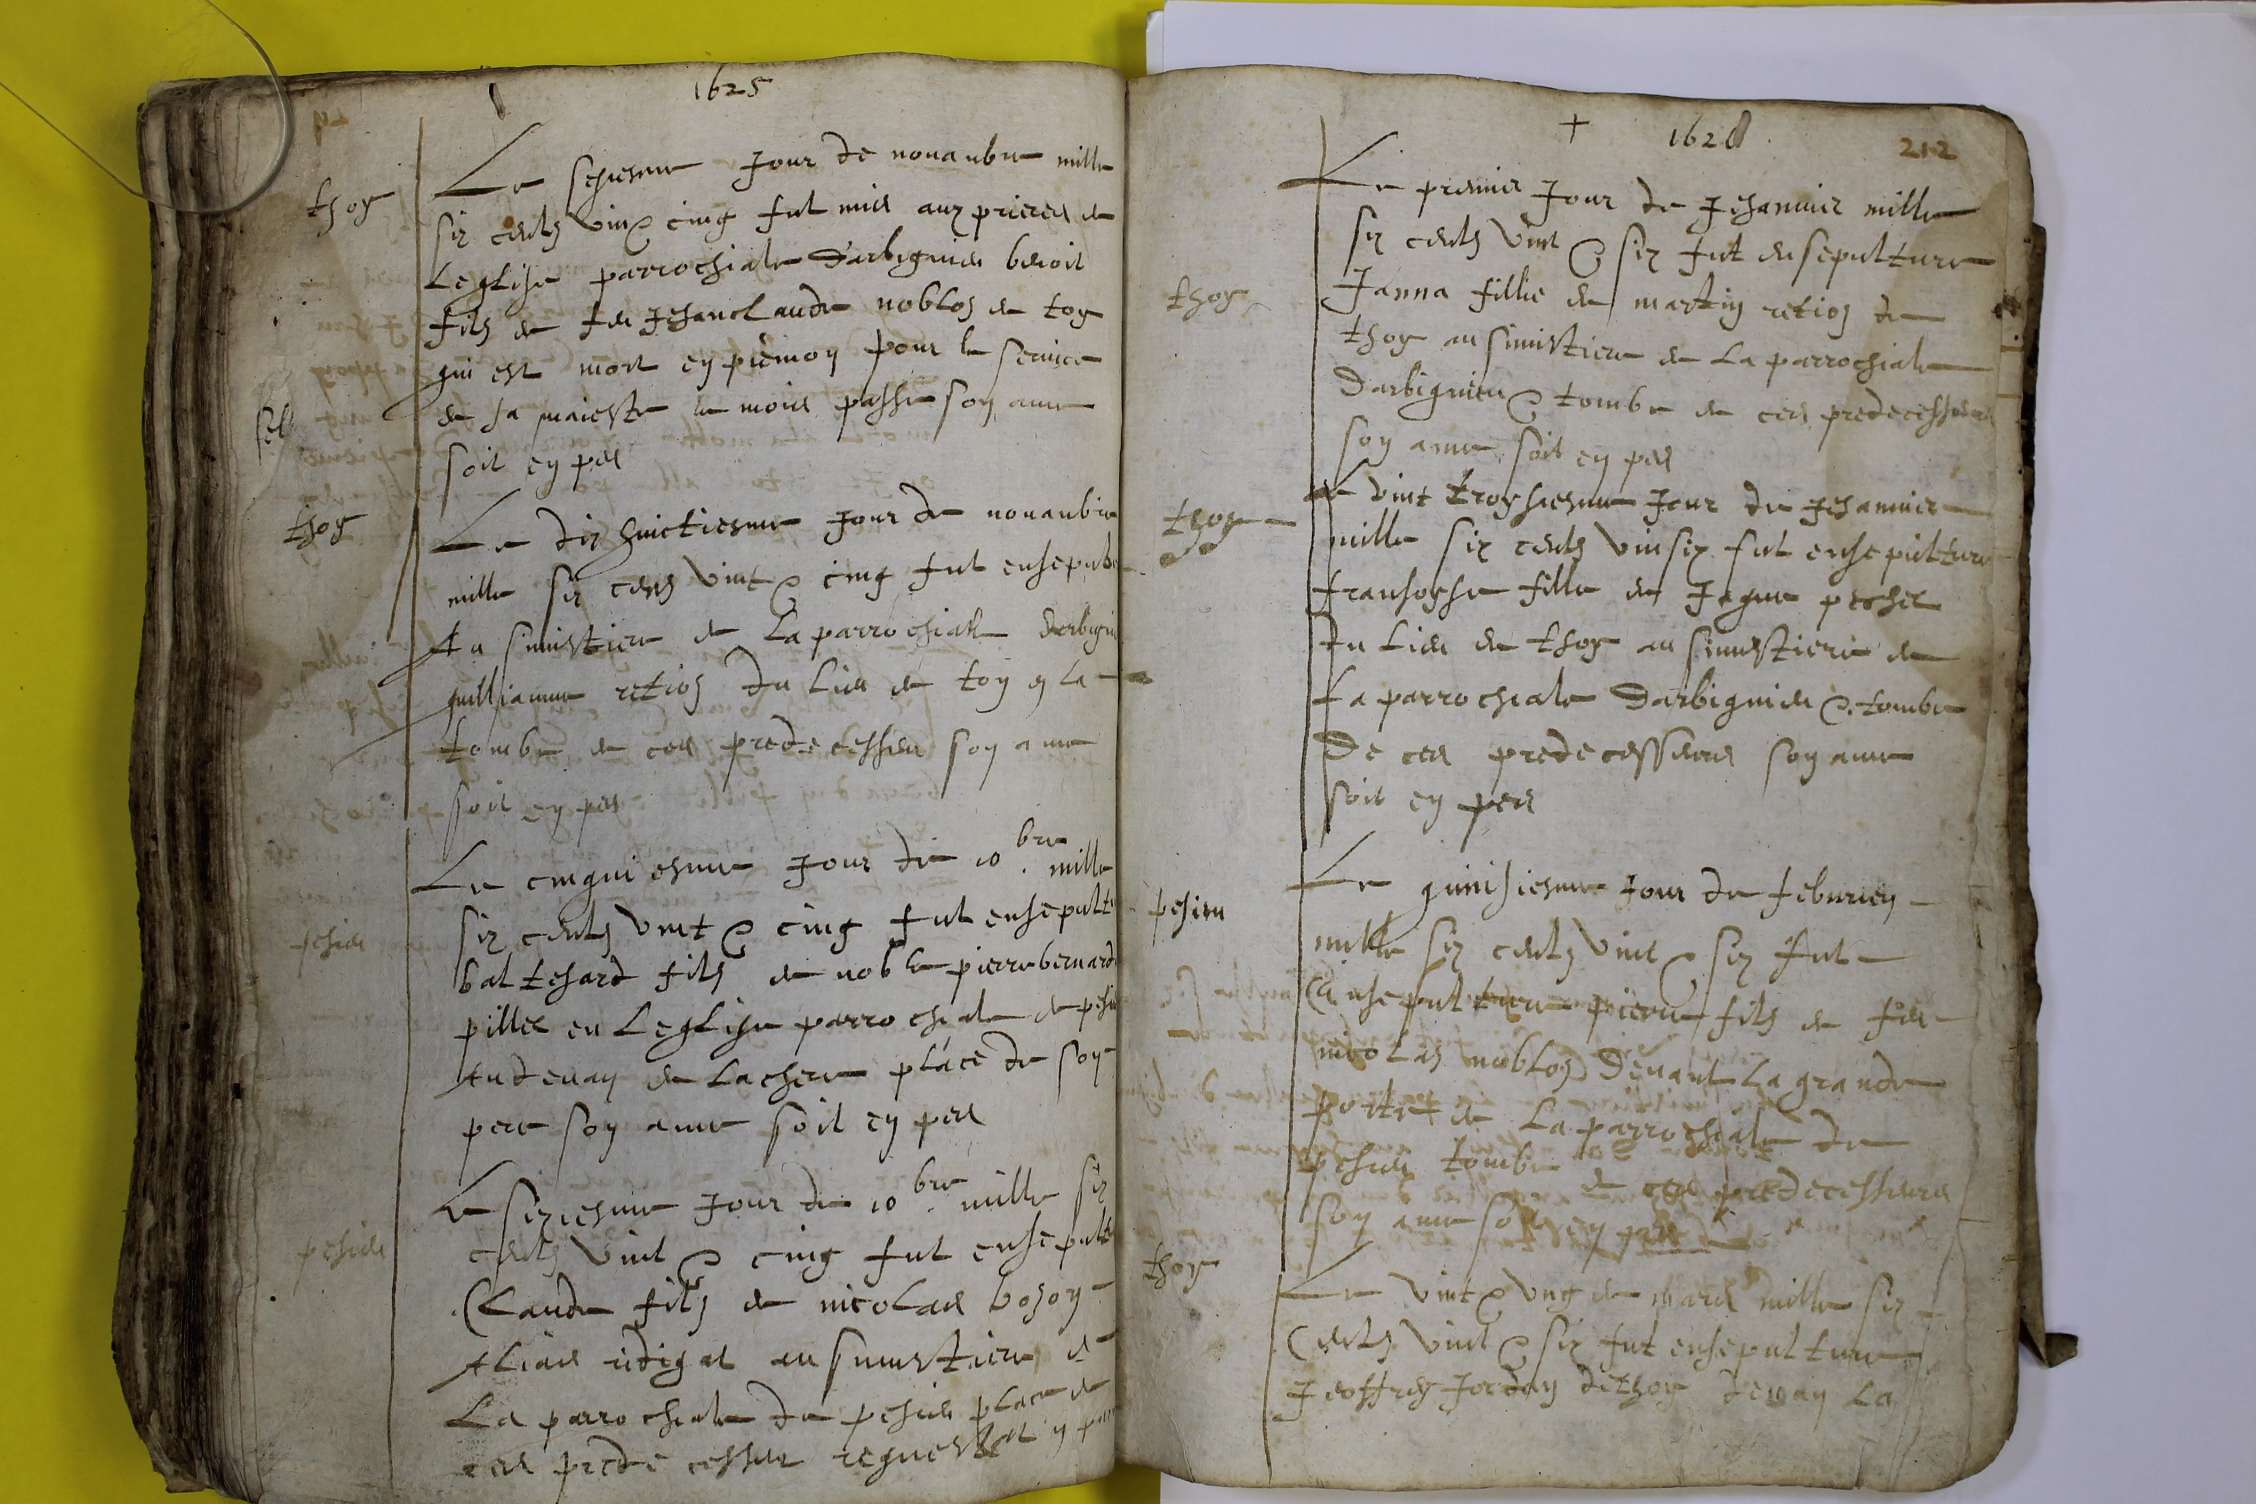 1625
thoy
Le sesiesme Jour de nouanbre mille
six cents vint & cinq fut mis aux prieres de
Leglise parrochiale Darbignieu benoit
fils de feu Jehanclaude noblos de toy
qui est mort en piemon pour le service
de sa maieste le mois passe son ame
soit en pes
thoy
Le dix huictiesme Jour de nouanbre
mille six cents vint & cinq fut ensepult
Au simistiere de La parrochiale darbigni
guilliaume retios du Lieu de toy & La
tombe de ces predecesseu son ame
soit en pes
Le cinquiesme Jour de 10bre mille
six cents vint & cinq fut ensepultu
pesieu
baltesard fils de noble pierre bernard
pillet en Leglise parrochiale de pesieu
Au devan de La chere place de son
pere son ame soit en pes
Le sixiesme Jour de 10bre mille six
cents vint & cinq fut ensepultu
pesieu
Claude fils de nicolas boson
Alias au simistiere de
La parrochiale de pesieu place de
ces predecesseur
+ 1626
212
Le premier Jour de Jehanvier mille
six cents vint & six fut ensepulture
thoy
Janna fillie de martin retios de
thoy au simistiere de La parrochiale
Darbignieu & tombe de ces predecesseurs
son ame soit en pes
thoy
Le vint troysiesme Jour de Jehanvier
mille six cents vinsix fut ensepulture
fransoyse fille de Jaque peshet
du Lieu de thoy au simistiere de
La parrochiale Darbignieu & tombe
De ces predecesseurs son ame
soit en pes
pesieu
Le quinsiesme Jour de feburien
mille six cents vint & six fut
Ensepulture pierre fils de feu
nicolas noblos Devant La grande
porte de La parrochiale de
pesieu tombe de ces predecesseurs
son ame soit en pes
thoy
Le vint & ung de mars mille six
Cents vint & six fut ensepulture
Jeoffrey Jordan de thoy devan La